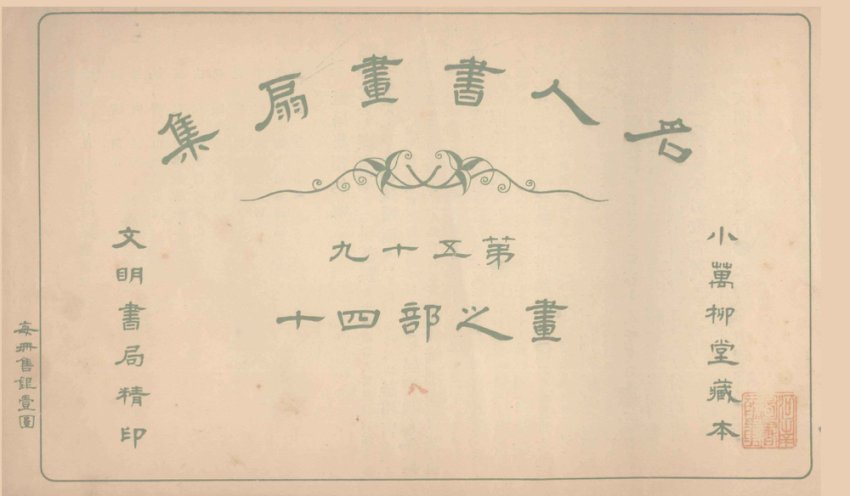 名人書畫扇集
第五十九
畫之部四十
小萬柳堂藏本
文明書局精印
每冊售銀壹圓